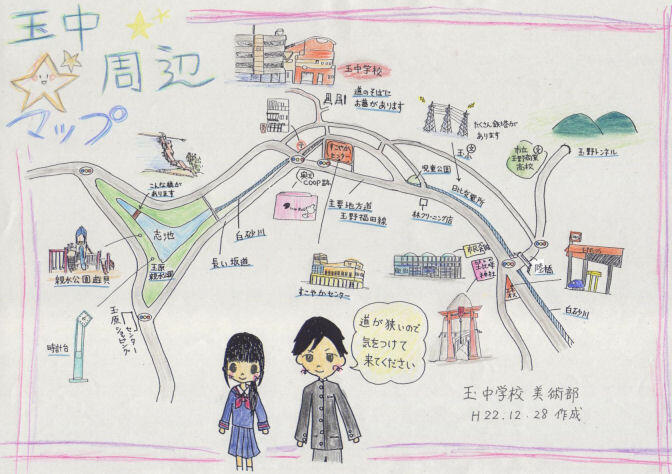 玉中
周辺
マップ
玉中学校
道のそばに
お墓があります
たくさん鉄塔が
あります
すこやか
センター
児童公園
市立
玉野商業
高校
玉野トンネル
こんな橋が
あります
主要地方道
玉野福田線
林クリーニング店
日比変電所
志池
白砂川
長い坂道
親水公園遊具
玉原
親水公園
すこやかセンター
市民会館
陸橋
白砂川
玉原
ショッピング
センター
時計台
道が狭いので
気をつけて
来てください
玉中学校 美術部
H22.12.28 作成